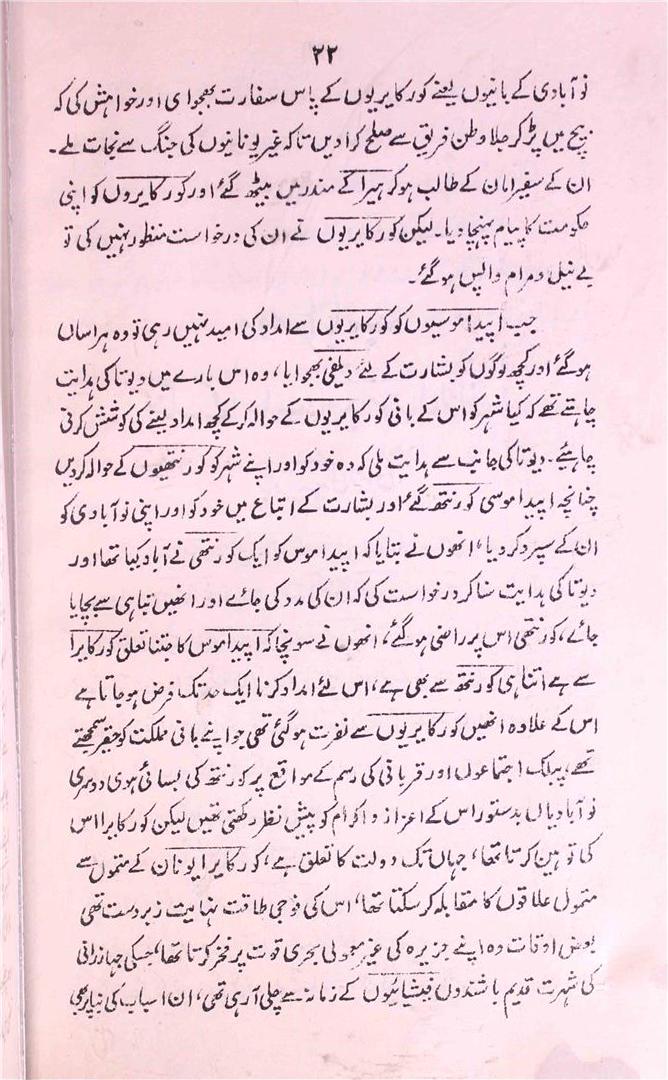 ۲۲
نو آبادی کے بانیوں یعنے کورکایریوں کے پاس سفارت بھجوای اور خواہش کی کہ
بیچ میں پڑ کر جلاوطن فریق سے صلح کرا دیں تاکہ غیر یونانیوں کی جنگ سے نجات ملے۔
ان کے سفیر امان کے طالب ہو کر ہیرا کے مندر میں بیٹھ گئے اور کورکایروں کو اپنی
حکومت کا پیام پہنچا دیا۔ لیکن کورکایریوں نے ان کی درخواست منظور نہیں کی تو
بے نیل و مرام واپس ہو گئے۔
جب اپیداموسیوں کو کورکایریوں سے امداد کی امید نہیں رہی تو وہ ہراساں
ہو گئے اور کچھ لوگوں کو بشارت کے لئے دیلفی بھجوایا، وہ اس بارے میں دیوتا کی ہدایت
چاہتے تھے کہ کیا شہر کو اس کے بانی کورکایریوں کے حوالہ کر کے کچھ امداد لینے کی کوشش کرنی
چاہئیے۔ دیوتا کی جانب سے ہدایت ملی کہ وہ خود کو اور اپنے شہر کو کورنتھیوں کے حوالہ کر دیں
چنانچہ اپیداموسی کورنتھ گئے اور بشارت کے اتباع میں خود کو اور اپنی نو آبادی کو
ان کے سپرد کر دیا، انھوں نے بتایا کہ اپیداموس کو ایک کورنتھی نے آباد کیا تھا اور
دیوتا کی ہدایت سنا کر درخواست کی کہ ان کی مدد کی جائے اور انھیں تباہی سے بچایا
جائے، کورنتھی اس پر راضی ہو گئے، انھوں نے سونچا کہ اپیداموس کا جتنا تعلق کورکایرا
سے ہے اتنا ہی کورنتھ سے بھی ہے، اس لئے امداد کرنا ایک حد تک فرض ہو جاتا ہے
اس کے علاوہ انھیں کورکایریوں سے نفرت ہو گئی تھی جو اپنے بانی مملکت کو حقیر سمجھتے
تھے، پبلک اجتماعوں اور قربانی کی رسم کے مواقع پر کورنتھ کی بسائی ہوی دوسری
نو آبادیاں بدستور اس کے اعزاز و اکرام کو پیش نظر رکھتی تھیں لیکن کورکایرا اس
کی توہین کرتا تھا، جہاں تک دولت کا تعلق ہے، کورکایرا یونان کے متمول سے
متمول علاقوں کا مقابلہ کر سکتا تھا، اس کی فوجی طاقت نہایت زبردست تھی
بعض اوقات وہ اپنے جزیرہ کی غیر معمولی بحری قوت پر فخر کرتا تھا، جسکی جہازرانی
کی شہرت قدیم باشندوں فیشیائیوں کے زمانہ سے چلی آ رہی تھی، ان اسباب کی بنا پر بھی